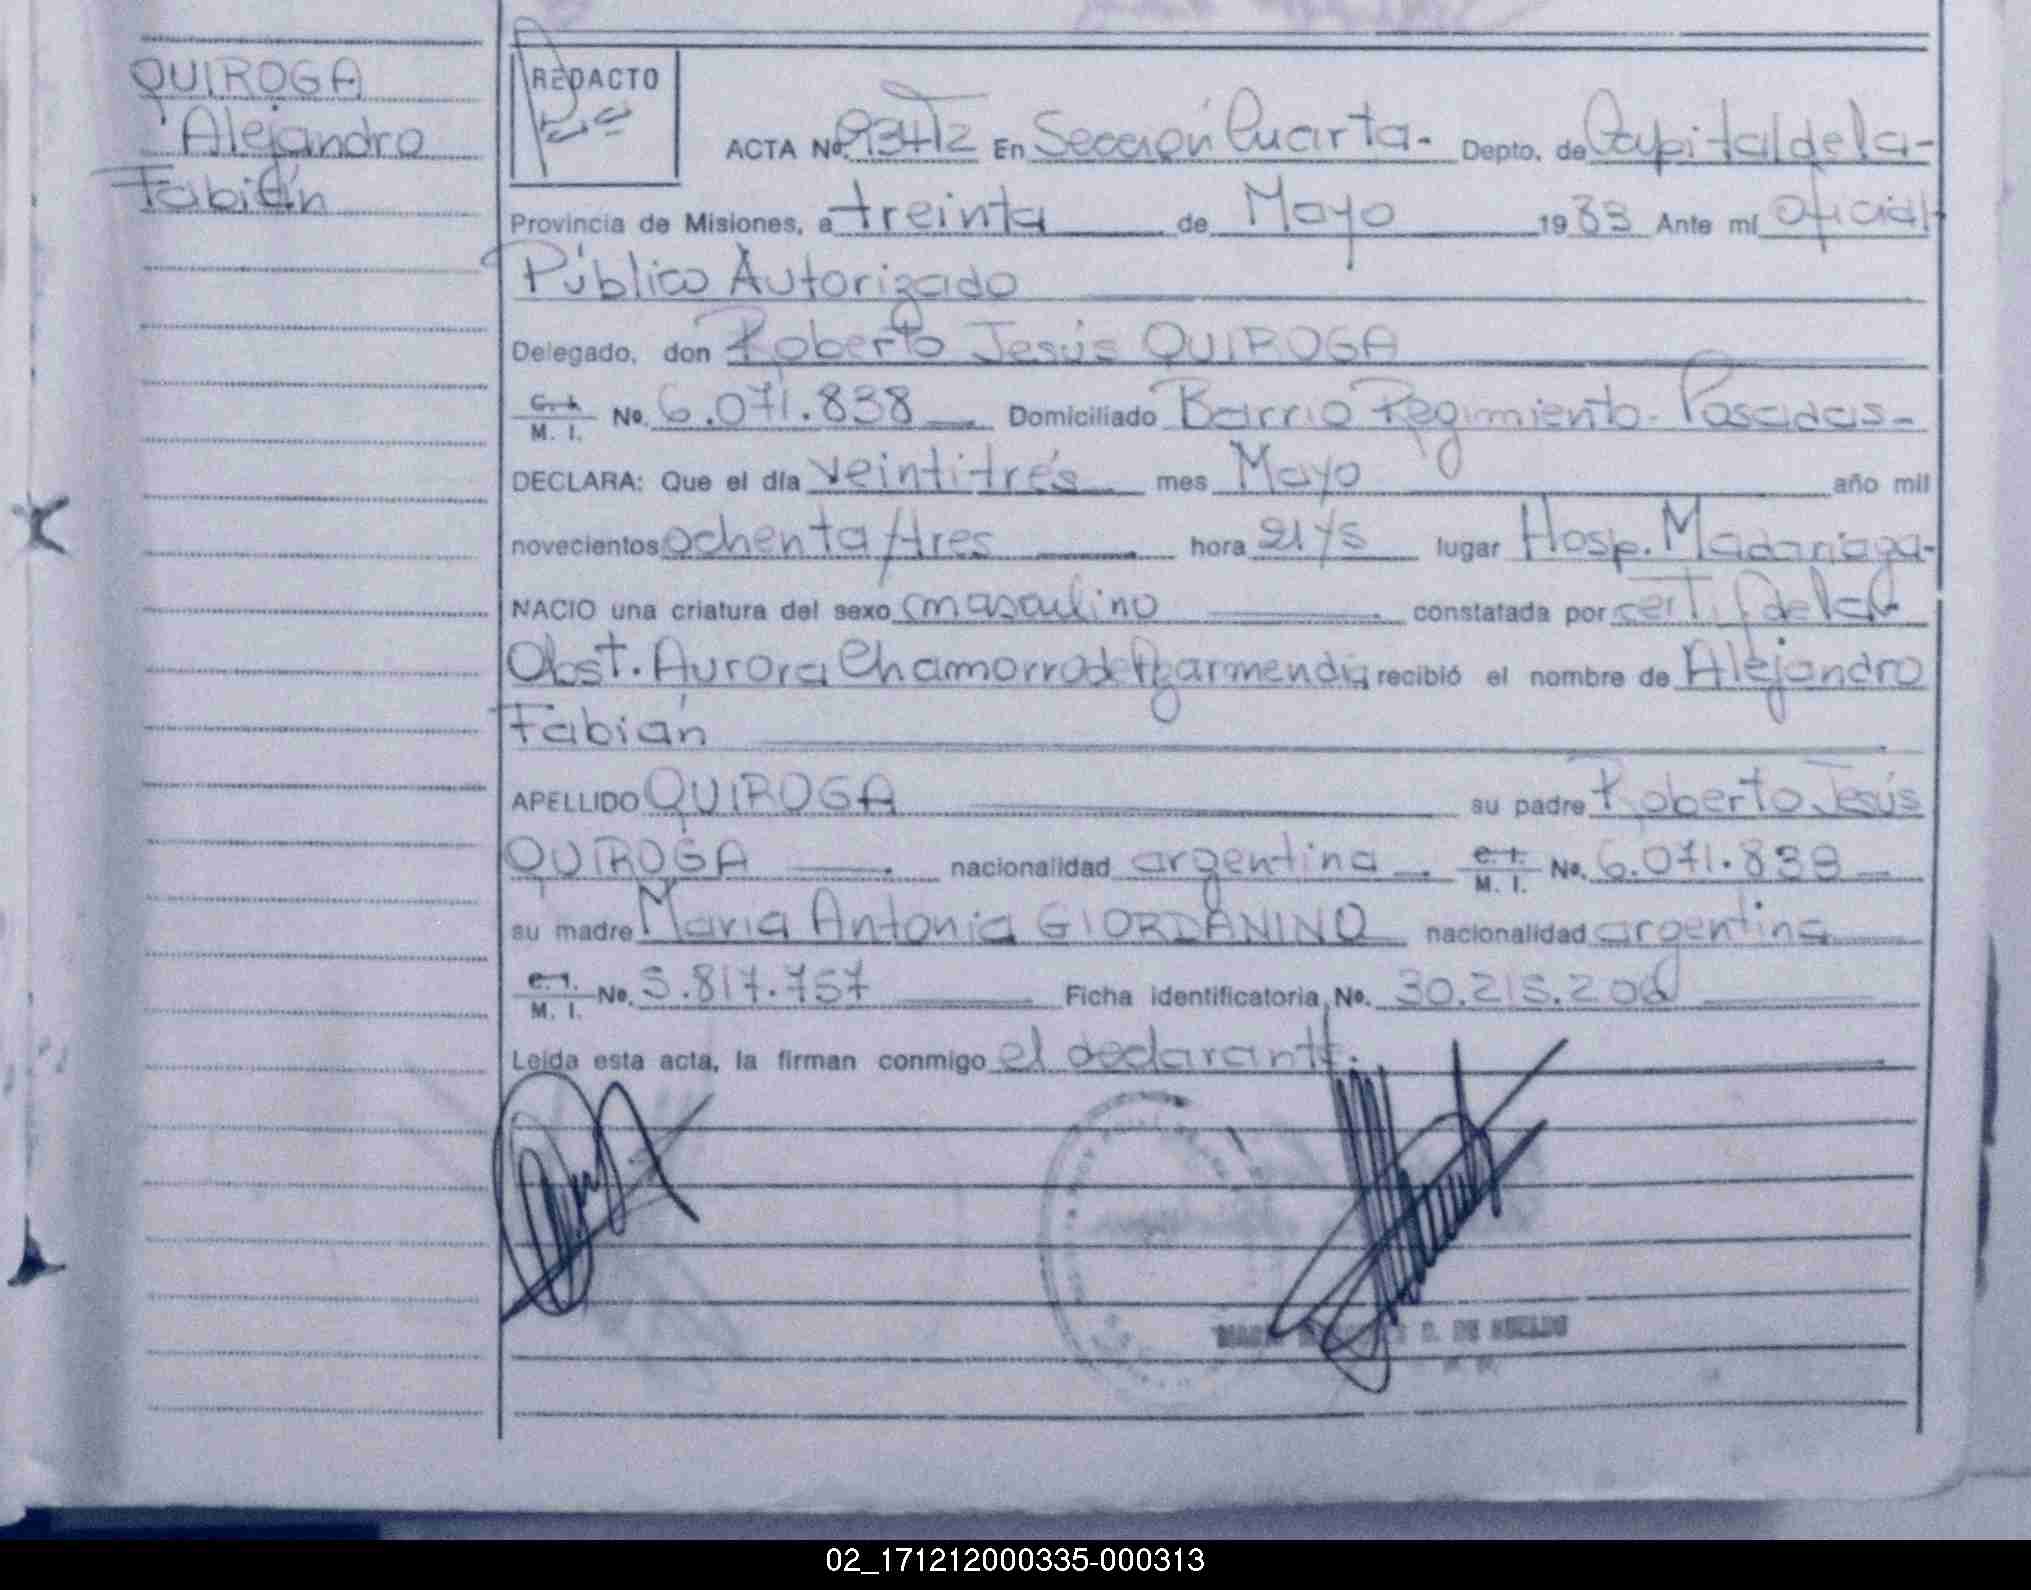 QUIROGA
Alejandro
Fabián
REDACTO
ACTA No. En Sección Cuarta.- Depto. de Capital de la-
Provincia de Misiones, a treinta de Mayo 1983 Ante mí Oficial
Público Autorizado
Delegado, don Roberto Jesús QUIROGA
C. I. M. I. No. 6.071.838 Domiciliado Barrio Regimiento- Posadas-
DECLARA: Que el día veintitrés mes Mayo año mil
novecientos ochenta y tres hora 21 y 5 lugar Hosp. Madariaga-
NACIO una criatura del sexo masculino constatada por certif de la
Obst. Aurora Chamorro de Agarmendia recibió el nombre de Alejandro
Fabián
APELLIDO QUIROGA su padre Roberto Jesús
QUIROGA nacionalidad argentina C. I. M. I. No. 6.071.838
su madre María Antonia GIORDANINO nacionalidad argentina
C. I. M. I. No. 5.817.757 Ficha identificatoria No. 30.215.200
Leída esta acta, la firman conmigo el declarante.
DE
02_171212000335-000313